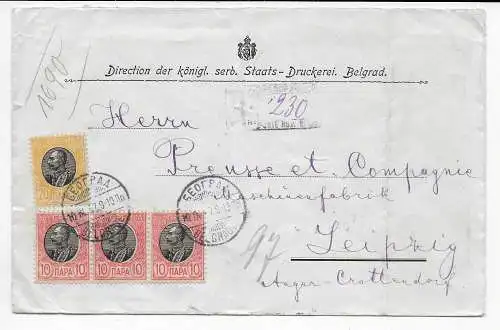 Direction der königl. serb. Staats-Druckerei. Belgrad.
1690
230
Herrn
Preusse et Compagnie
Leipzig
Anger-Crottendorf
97
БЕОГРАД
BELGRADE
БЕОГРАД
10 ПАРА 10
10 ПАРА 10
10 ПАРА 10